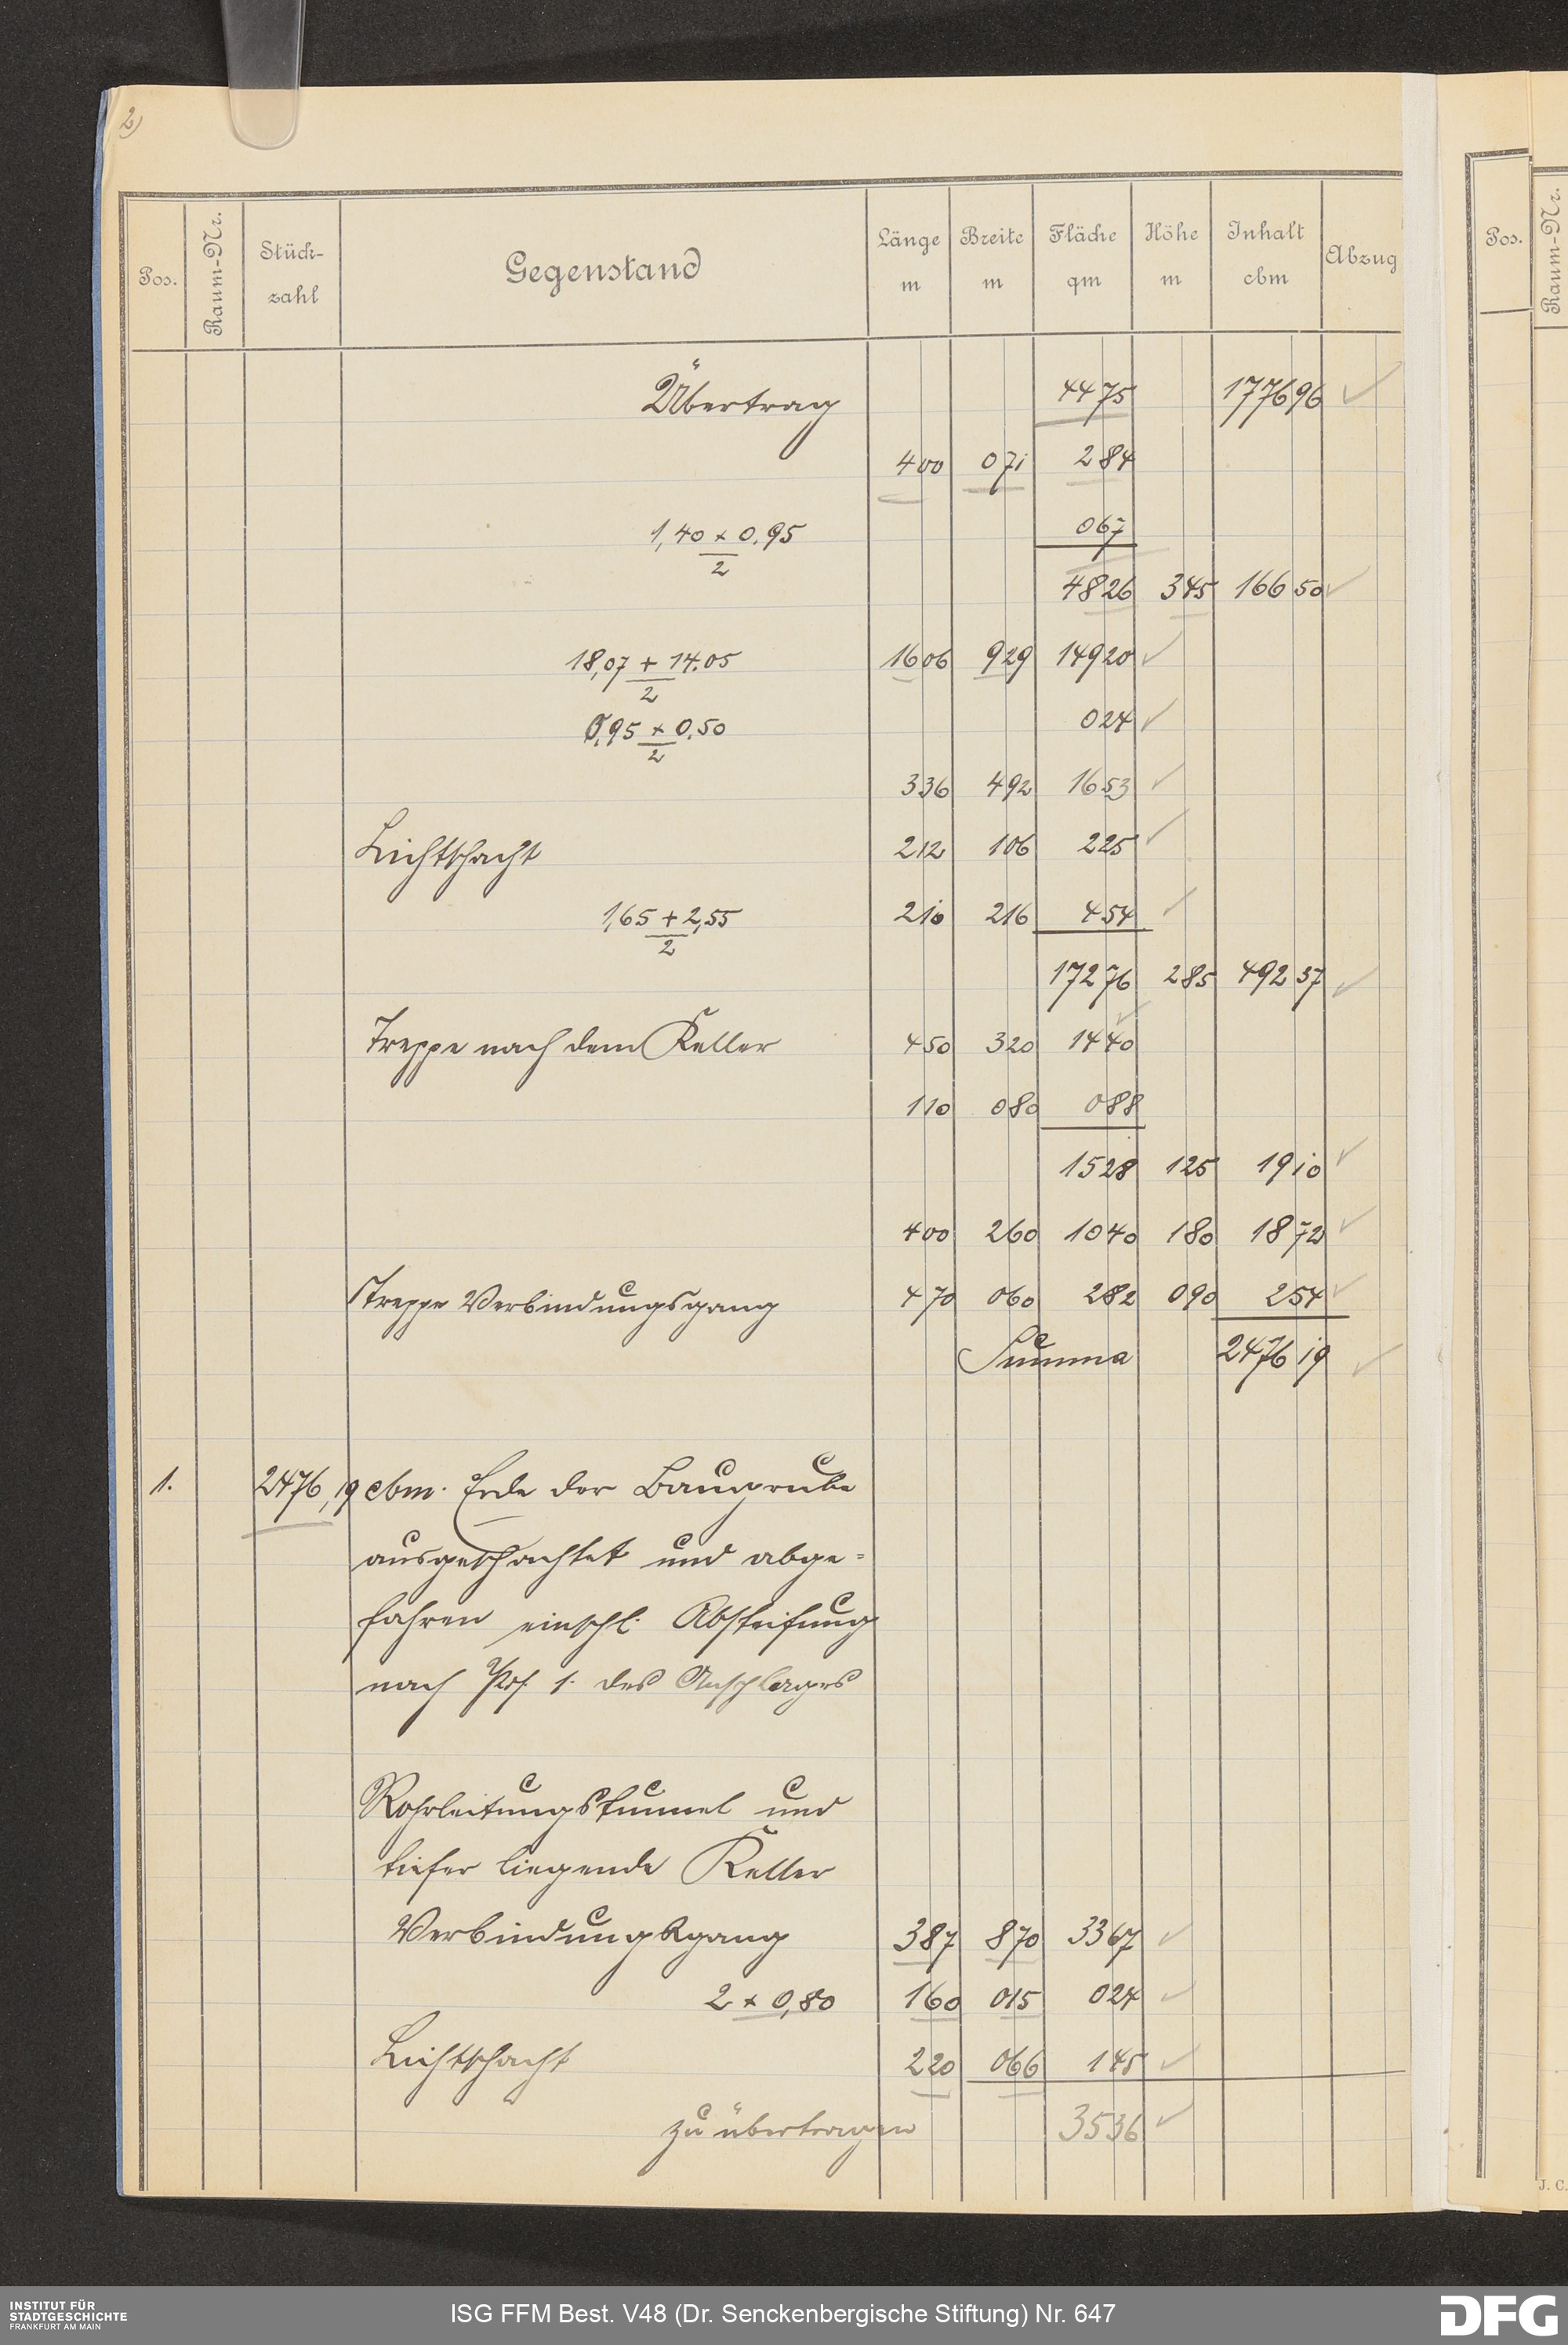 2)
Pos. Raum-Nr. Stück-zahl Gegenstand Länge m Breite m Fläche qm Höhe m Inhalt cbm Abzug
Übertrag 44 75 1776 96 ✓
4 00 0 71 2 84
1,40 × 0,95 / 2 0 67
48 26 3 45 166 50 ✓
18,07 + 14.05 / 2 16 06 9 29 149 20 ✓
0,95 × 0,50 / 2 0 24 ✓
3 36 4 92 16 53 ✓
Lichtschacht 2 12 1 06 2 25 ✓
1,65 + 2,55 / 2 2 10 2 16 4 54 ✓
172 76 2 85 492 37 ✓
Treppe nach dem Keller 4 50 3 20 14 40 ✓
1 10 0 80 0 88
15 28 1 25 19 10 ✓
4 00 2 60 10 40 1 80 18 72 ✓
Treppe Verbindungsgang 4 70 0 60 2 82 0 90 2 54 ✓
Summa 2476 19 ✓
1. 2476,19 cbm. Erde der Baugrube
ausgeschachtet und abge=
fahren einschl. Absteifung
nach Pos. 1. des Anschlages
Rohrleitungstunnel und
tiefer liegende Keller
Verbindungsgang 3 87 8 70 33 67 ✓
2 × 0,80 1 60 0 15 0 24 ✓
Lichtschacht 2 20 0 66 1 45 ✓
zu übertragen 35 36 ✓
Pos.
Raum-Nr.
J. C.
INSTITUT FÜR
STADTGESCHICHTE
FRANKFURT AM MAIN
ISG FFM Best. V48 (Dr. Senckenbergische Stiftung) Nr. 647
DFG